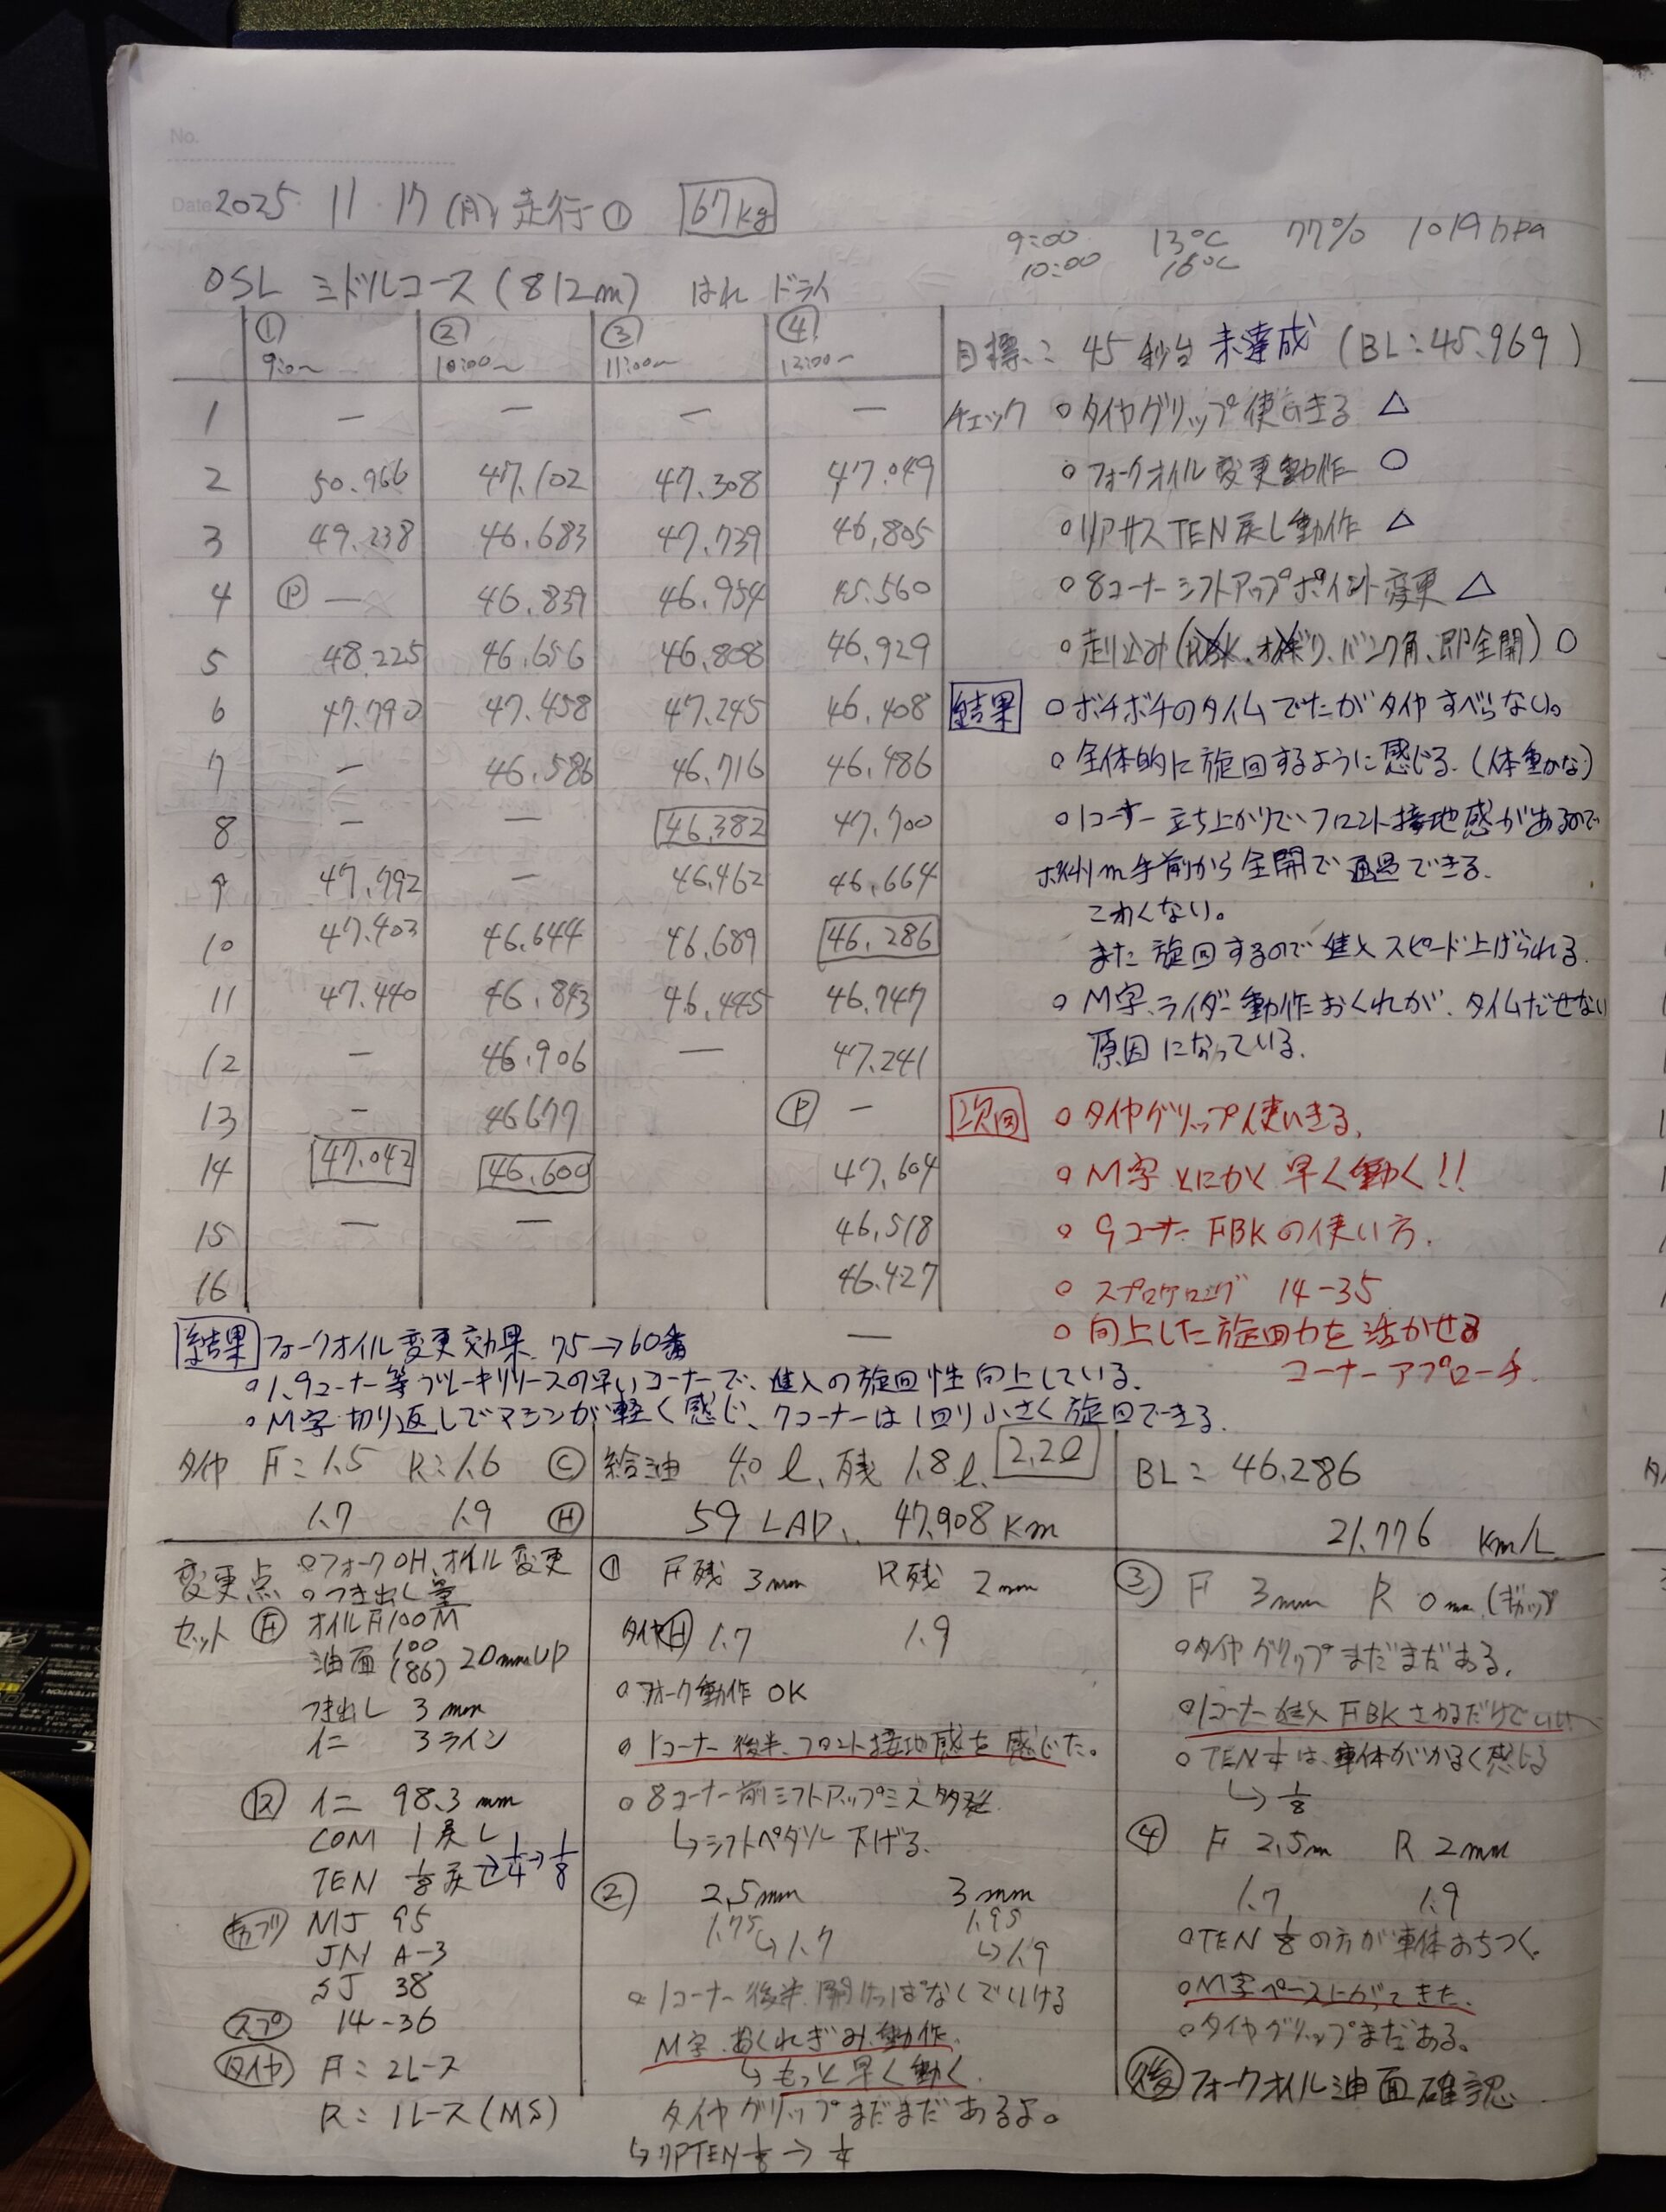 No.
Date 2025 11・17 (月) 走行① 67kg
9:00 13℃ 77% 1019hpa
10:00 16℃
OSL ミドルコース (812m) はれ ドライ
① ② ③ ④
9:00〜 10:00〜 11:00〜 12:00〜
1 — — — —
2 50.966 47.102 47.308 47.049
3 49.238 46.683 47.739 46,805
4 Ⓟ — 46.839 46.954 45.560
5 48.225 46.656 46.808 46.929
6 47.790 47.458 47.245 46,408
7 — 46.586 46.716 46,486
8 — — 46.382 47.700
9 47.792 — 46.462 46,664
10 47.403 46.644 46.689 46,286
11 47.440 46.843 46.445 46.747
12 — 46.906 — 47.241
13 — 46677 Ⓟ —
14 47.042 46.600 47,604
15 — — 46,518
16 46.427
—
目標: 45秒台 未達成 (BL:45.969)
チェック ○タイヤグリップ使いきる △
○フォークオイル変更動作 ○
○リアサスTEN戻し動作 △
○8コーナーシフトアップポイント変更 △
○走り込み(RBK、バンク角、即全開) ○
結果 ○ボチボチのタイムでたがタイヤすべらない。
○全体的に旋回するように感じる.(体重かな)
○1コーナー立ち上がりでフロント接地感があるので
手前から全開で通過できる.
こわくない。
また旋回するので進入スピード上げられる.
○M字、ライダー動作おくれが、タイムだせない
原因になっている.
次回 ○タイヤグリップ使いきる.
○M字とにかく早く動く!!
○9コーナーFBKの使い方.
○スプロケロング 14-35
○向上した旋回力を活かせる
コーナーアプローチ.
結果 フォークオイル変更効果 75→60番
○1、9コーナー等ブレーキリリースの早いコーナーで、進入の旋回性向上している.
○M字切り返しでマシンが軽く感じ、7コーナーは1回り小さく旋回できる.
タイヤ F:1.5 R:1.6 Ⓒ
1.7 1.9 Ⓗ
給油 4.0l、残 1.8l. 2.2l
59 LAP、 47.908Km
BL: 46.286
21.776 Km/L
変更点 ○フォークOH、オイル変更
○つき出し量
セット Ⓕ オイルF100M
油面 100 (86) 20mmUP
つき出し 3mm
イニ 3ライン
Ⓡ イニ 98.3mm
COM 1戻し
TEN 1/8戻し→1/4→1/8
キャブ MJ 95
JN A-3
SJ 38
スプ 14-36
タイヤ F:2レース
R:1レース(MS)
① F残 3mm R残 2mm
タイヤⒽ 1.7 1.9
○フォーク動作OK
○1コーナー後半、フロント接地感を感じた。
○8コーナー前シフトアップミス多発
↳シフトペダル下げる.
② 2,5mm 3mm
1.75 ↳1.7 1.95 ↳1.9
○1コーナー後半開けっぱなしでいける
M字、おくれぎみ動作.
↳もっと早く動く.
タイヤグリップまだまだあるよ。
↳リアTEN 1/8→1/4
③ F 3mm R 0mm (ギャップ)
○タイヤグリップまだまだある.
○1コーナー進入FBKさわるだけでいい
○TEN 1/4は、車体がかるく感じる
↳1/8
④ F 2,5m R 2mm
1.7 1.9
○TEN 1/8の方が車体おちつく.
○M字ペース上がってきた.
○タイヤグリップまだある。
後 フォークオイル油面確認